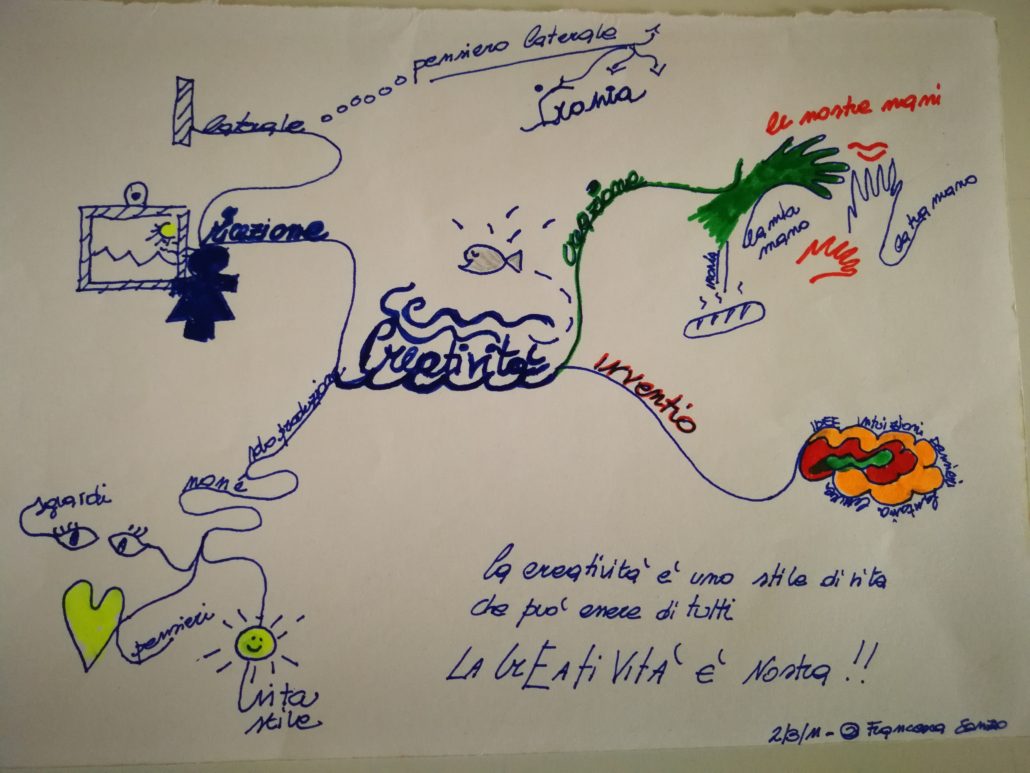 pensiero laterale
Ironia
laterale
le nostre mani
Creazione
la mia
mano
la tua mano
Creatività
INVENTIO
solo produzione
non è
sguardi
IDEE
INTUIZIONI
PENSIERI
fantasia
pensieri
vita
stile
la creatività è uno stile di vita
che può essere di tutti
LA CREATIVITÀ È NOSTRA!!
2/3/11 - Francesca Sanzo